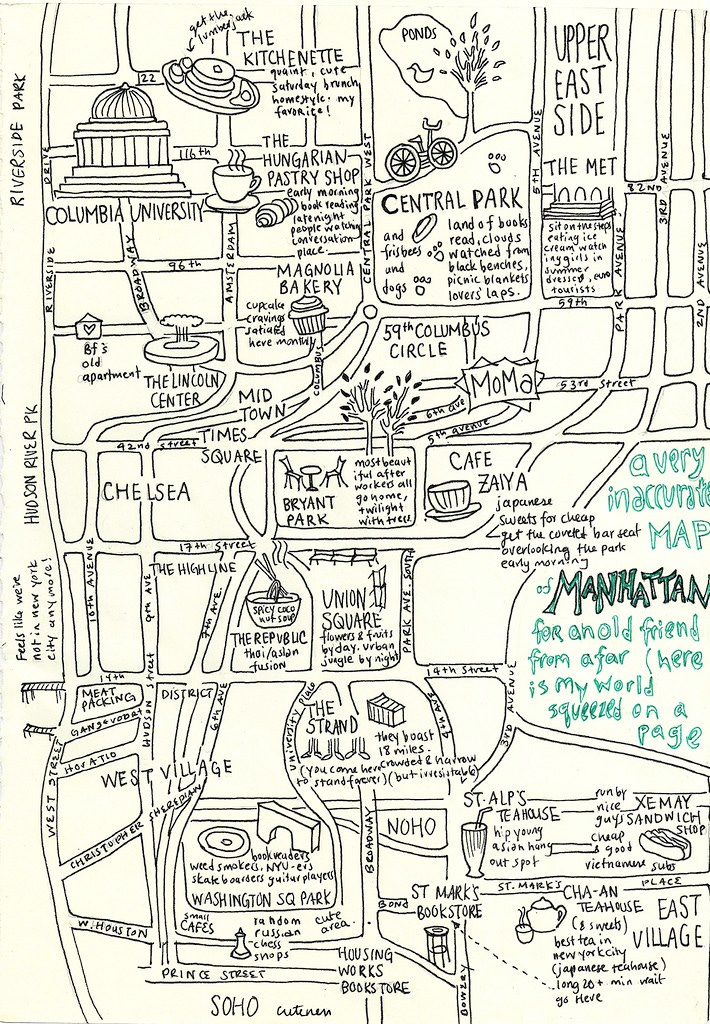 get the
lumberjack
THE
KITCHENETTE
quaint, cute
saturday brunch
homestyle. my
favorite!
PONDS
UPPER
EAST
SIDE
RIVERSIDE PARK
122
116th
DRIVE
RIVERSIDE
COLUMBIA UNIVERSITY
THE
HUNGARIAN
PASTRY SHOP
early morning
book reading
late night
people watching
conversation
place.
CENTRAL PARK WEST
CENTRAL PARK
and
frisbees
and
dogs
land of books
read, clouds
watched from
black benches,
picnic blankets
lovers' laps.
5TH AVENUE
THE MET
sit on the steps
eating ice
cream watch
ing girls in
summer
dresses, euro
tourists
82ND
3RD AVENUE
PARK AVENUE
2ND AVENUE
BROADWAY
AMSTERDAM
96th
MAGNOLIA
BAKERY
cupcake
cravings
satiated
here monthly
COLUMBUS
59th
59th COLUMBUS
CIRCLE
Bf's
old
apartment
THE LINCOLN
CENTER
MID
TOWN
MoMa
53rd Street
6th ave
5th avenue
42nd street
TIMES
SQUARE
HUDSON RIVER PK
CHELSEA
BRYANT
PARK
most beaut
iful after
workers all
go home,
twilight
with trees
CAFE
ZAIYA
japanese
sweets for cheap
get the coveted bar seat
overlooking the park
early morning
a very
inaccurate
MAP
of MANHATTAN
for an old friend
from afar (here
is my world
squeezed on a
page
Feels like we're
not in new york
city anymore!
10th AVENUE
9th AVE
17th Street
THE HIGHLINE
7th AVE.
SPICY COCO
NUT SOUP
THE REPUBLIC
thai/asian
fusion
UNION
SQUARE
flowers & fruits
by day. urban
jungle by night
PARK AVE SOUTH
14th
14th Street
MEAT
PACKING
DISTRICT
GANSEVOORT
HUDSON street
6th AVE
university place
THE
STRAND
they boast
18 miles.
(you come here
to stand forever)
crowded & narrow
(but irresistable)
4th AVE
3RD AVENUE
HORATIO
WEST STREET
WEST VILLAGE
CHRISTOPHER
SHERIDIAN
bookreaders
weed smokers, NYU-ers
skateboarders guitar players
WASHINGTON SQ PARK
BROADWAY
NOHO
ST. ALP'S
TEAHOUSE
hip young
asian hang
out spot
run by
nice
guys
cheap
& good
vietnamese subs
XE MAY
SANDWICH
SHOP
ST. MARK'S PLACE
ST MARK'S
BOOKSTORE
BOND
CHA-AN
TEAHOUSE
(& sweets)
best tea in
new york city
(japanese teahouse)
long 20+ min wait
go Here
EAST
VILLAGE
W. HOUSTON
small
CAFES
random
russian
chess
shops
cute
area.
PRINCE STREET
HOUSING
WORKS
BOOKSTORE
BOWERY
SOHO